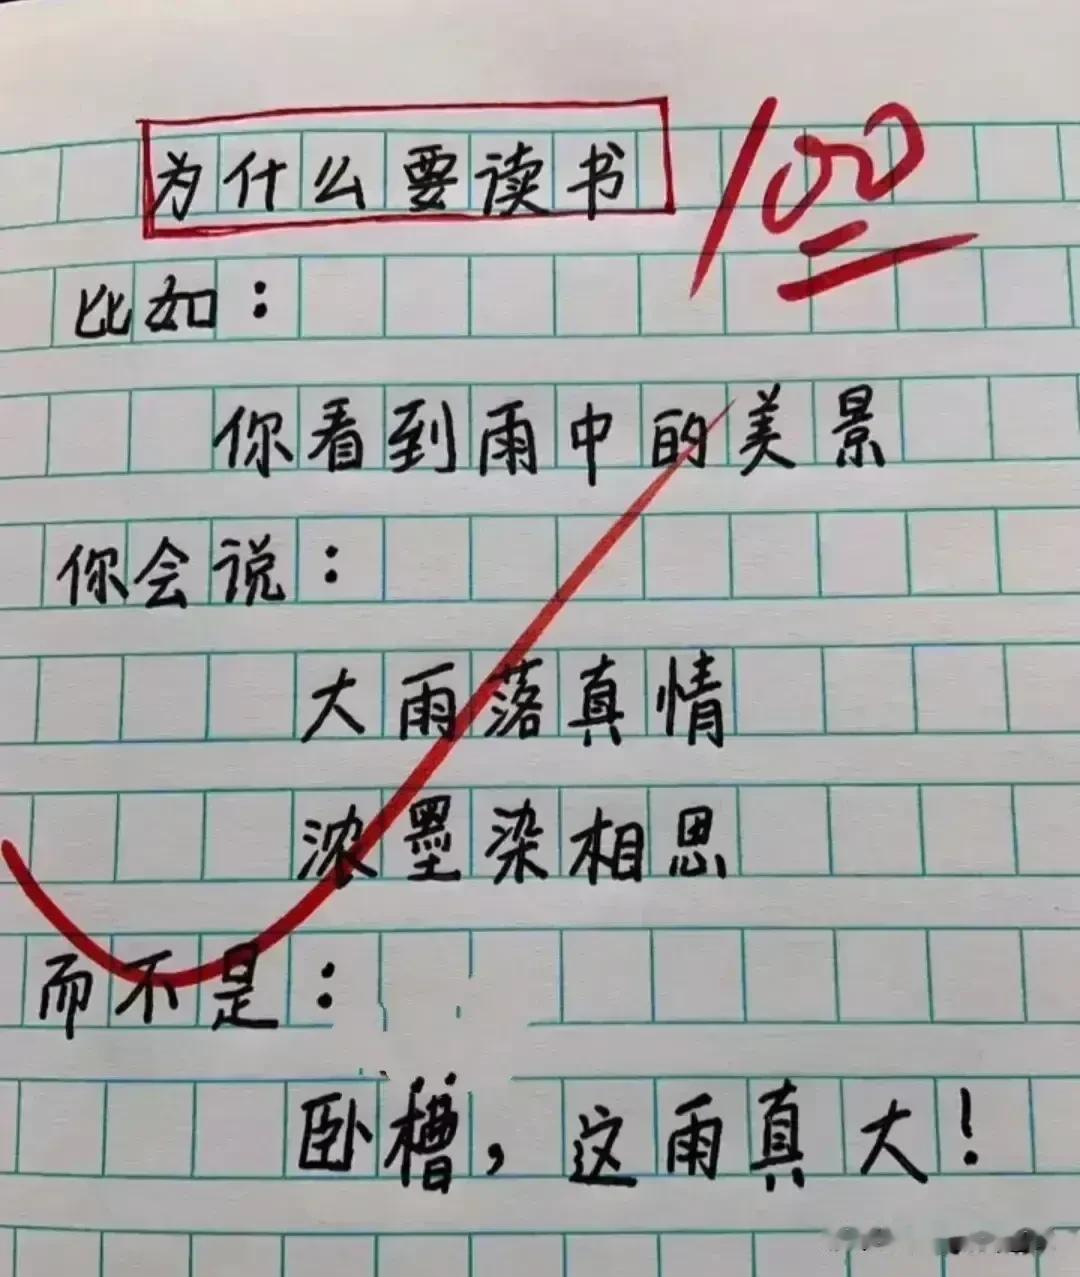 为什么要读书
100
比如：
你看到雨中的美景
你会说：
大雨落真情
浓墨染相思
而不是：
卧槽，这雨真大！